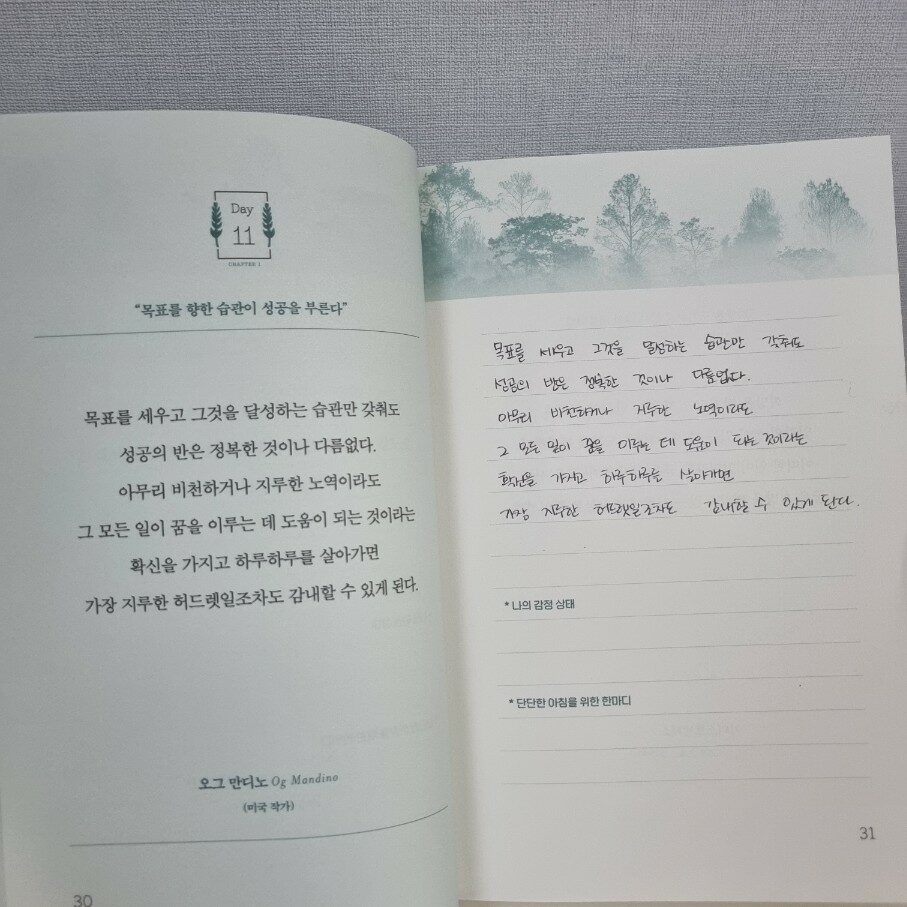 Day
11
CHAPTER 1
“목표를 향한 습관이 성공을 부른다”
목표를 세우고 그것을 달성하는 습관만 갖춰도
성공의 반은 정복한 것이나 다름없다.
아무리 비천하거나 지루한 노역이라도
그 모든 일이 꿈을 이루는 데 도움이 되는 것이라는
확신을 가지고 하루하루를 살아가면
가장 지루한 허드렛일조차도 감내할 수 있게 된다.
오그 만디노 Og Mandino
(미국 작가)
30
목표를 세우고 그것을 달성하는 습관만 갖춰도
성공의 반은 정복한 것이나 다름없다.
아무리 비천하거나 지루한 노역이라도
그 모든 일이 꿈을 이루는 데 도움이 되는 것이라는
확신을 가지고 하루하루를 살아가면
가장 지루한 허드렛일조차도 감내할 수 있게 된다.
* 나의 감정 상태
* 단단한 아침을 위한 한마디
31